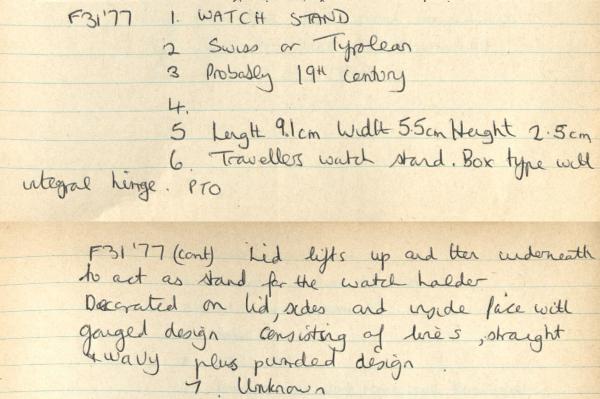 F31'77 1. WATCH STAND
2 Swiss or Tyrolean
3 Probably 19th century
4.
5 Length 9.1cm Width 5.5cm Height 2.5cm
6. Travellers watch stand. Box type with
integral hinge. PTO
F31'77 (cont) Lid lifts up and then underneath
to act as stand for the watch holder
Decorated on lid, sides and inside face with
gouged design consisting of lines, straight
& wavy plus punched design
7. Unknown